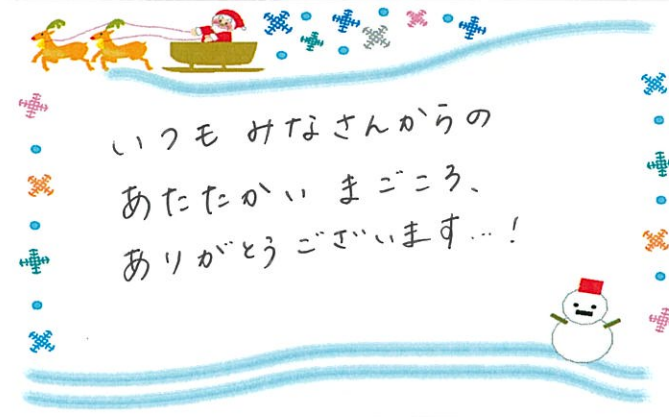 いつも みなさんからの
あたたかい まごころ、
ありがとうございます…!